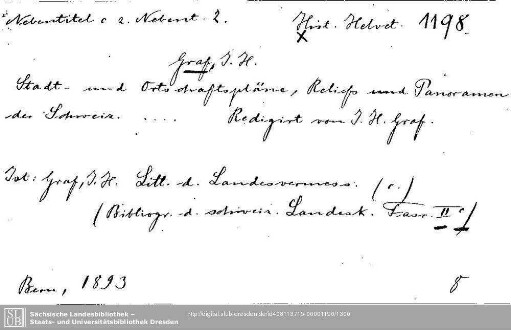 Nebentitel c z. Nebent. 2.
Hist. Helvet. 1198.
Graf, J. H.
Stadt- und Ortschaftspläne, Reliefs und Panoramen
der Schweiz. .... Redigirt von J. H. Graf.
Ist: Graf, J. H. Litt. d. Landesvermess. (c.)
(Bibliogr. d. schweiz. Landesk. Fasc. II c)
Bern, 1893
8
SLUB
Sächsische Landesbibliothek –
Staats- und Universitätsbibliothek Dresden